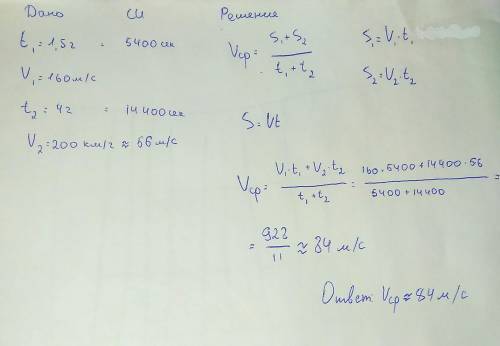 Дано СИ Решение
t₁ = 1,5г = 5400 сек
V₁ = 160 м/с
t₂ = 4г = 14400 сек
V₂ = 200 км/г ≈ 56 м/с
Vср = (S₁ + S₂) / (t₁ + t₂)
S₁ = V₁ · t₁
S₂ = V₂ · t₂
S = Vt
Vср = (V₁ · t₁ + V₂ · t₂) / (t₁ + t₂) = (160 · 5400 + 14400 · 56) / (5400 + 14400) =
= 922 / 11 ≈ 84 м/с
Ответ Vср ≈ 84 м/с